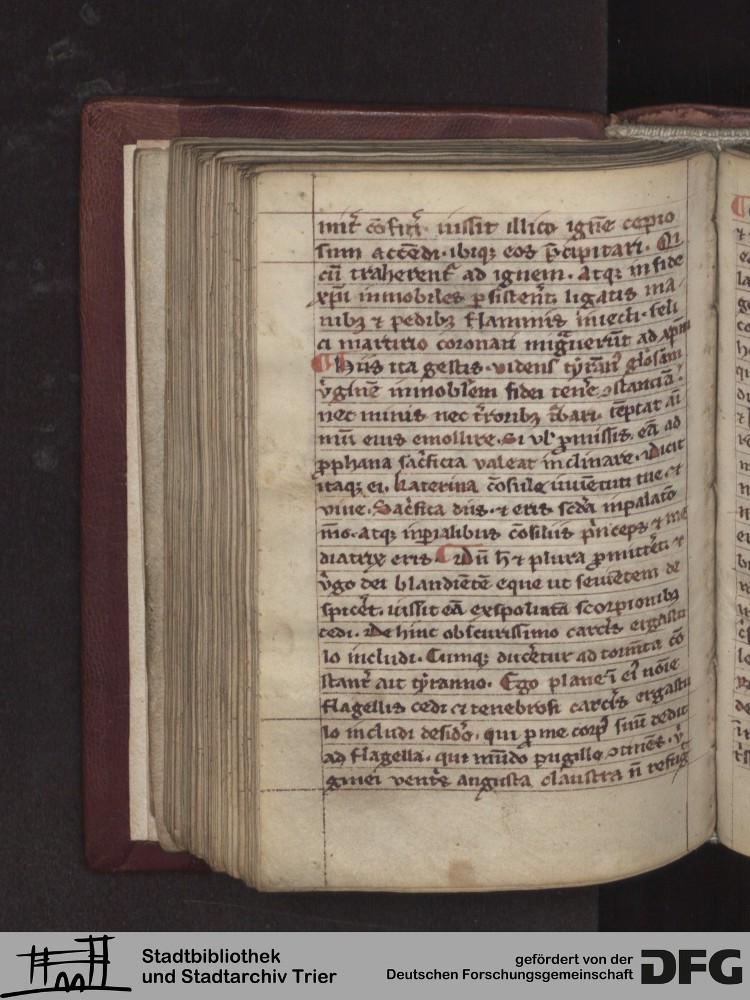 mit͛ cōfit͛i. iussit illico igne͞ copio
sum accēdi. ibiqꝫ eos p͛cipitari. Qi
cū traherent͛ ad ignem. atqꝫ in fide
xp̄i inmobiles ꝑsistent͛. ligatis ma
nibꝫ ⁊ pedibꝫ flammis iniecti. feli
ci martirio coronati mig͛uerūt ad xp̄m
Hiis ita gestis. videns tẏrān⁹ gl͛osam
v͛ginē inmobl̄em fidei tene͛ ꝯstanciā.
nec minis nec t͛roribꝫ t͛bari. tēptat ai
mū eius emollire. Si ul̕ ꝓmissis eā ad
ꝓphana sac͛ficia valeat inclinare. Dicit
itaqꝫ ei. katerina cōsule iuuētuti tue. ⁊
viue. Sac͛fica diis. ⁊ eris scd̄a in palatō
mō. atqꝫ inꝑialibus cōsiliis p͛nceps ⁊ me
diatrix eris. Dū h̄ ⁊ plura ꝓmittet͛. ⁊
v͛go dei blandiētē eque ut seuiētem de
spicet͛. iussit eā expoliatā scorpionibꝫ
cedi. Dehinc obscurissimo carc͛is ergastu
lo includi. Cumqꝫ ducet͛ur ad torm̄ta cō
stant͛ ait tẏranno. Ego plane ī ei⁹ noīe
flagellis cedi ⁊ tenebrosi carc͛is ergastu
lo includi desid͛o. qui ꝓ me corp⁹ suū dedit
ad flagella. qui mūdo pugillo ꝯtinēs. v͛
ginei vent͛s angusta claustra n̄ refug
Stadtbibliothek
und Stadtarchiv Trier
gefördert von der
Deutschen Forschungsgemeinschaft
DFG